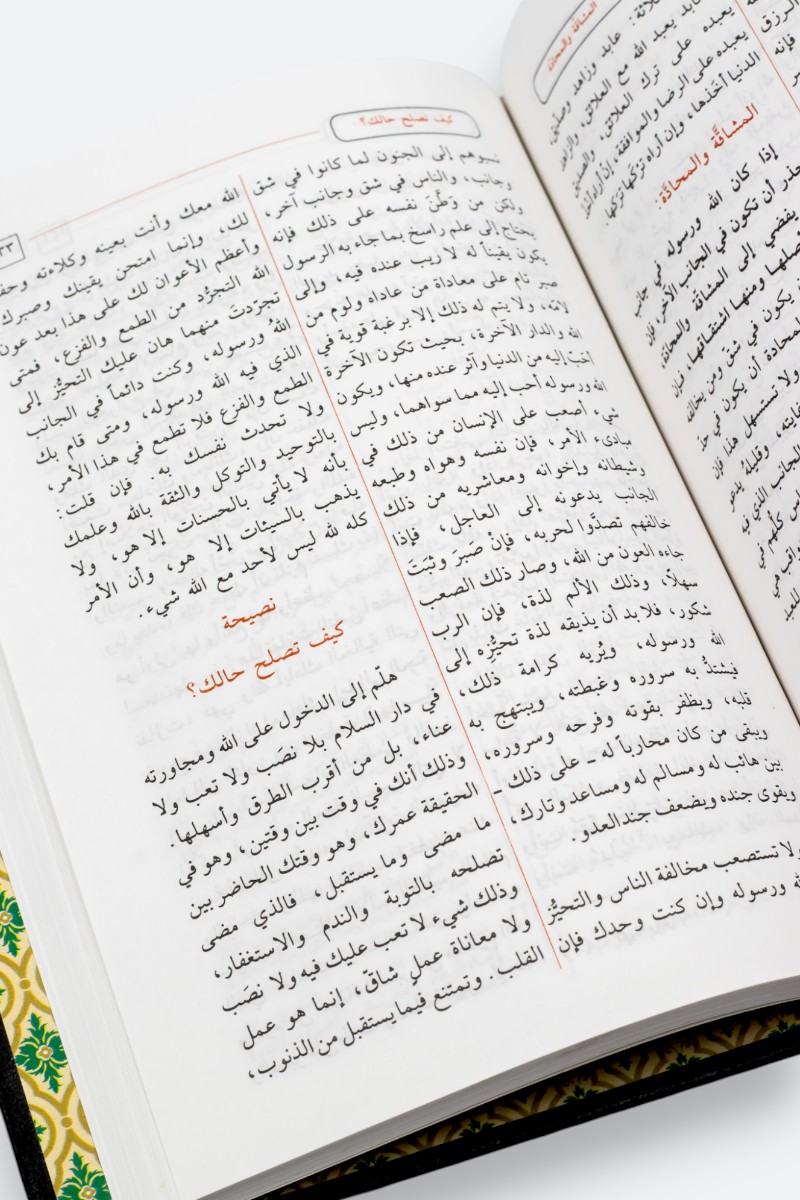 المشاقة والمحادة
الرزق
فإنه
ثلاثة: عابد وزاهد وصديق،
يعبد الله مع العلائق، والزاهد
يعبده على ترك العلائق، والصديق
يعبده على الرضا والموافقة، إن أراه أخذ
الدنيا أخذها، وإن أراه تركها تركها.
المشاقَّة والمحادَّة:
إذا كان الله ورسوله في جانب
حذر أن تكون في الجانب الآخر، فإن
يفضي إلى المشاقة والمحادة،
أصلها ومنها اشتقاقها، فإن
يكون في شق ومن يخالفه
المحادة أن يكون في حدّ
ولا تستسهل هذا فإن
غايته، وقليلهُ يدعو
الجانب الذي فيه
الناس كلُّهم في
هي
للعبد
كيف تصلح حالك؟
نسبوهم إلى الجنون لما كانوا في شق
وجانب، والناس في شق وجانب آخر،
ولكن من وَطَّنَ نفسه على ذلك فإنه
يحتاج إلى علم راسخ بما جاء به الرسول
يكون يقيناً له لا ريب عنده فيه، وإلى
صبر تام على معاداة من عاداه ولوم من
لامه، ولا يتم له ذلك إلا برغبة قوية في
الله والدار الآخرة، بحيث تكون الآخرة
أحبّ إليه من الدنيا وآثر عنده منها، ويكون
الله ورسوله أحب إليه مما سواهما، وليس
شيء أصعب على الإنسان من ذلك في
مبادىء الأمر، فإن نفسه وهواه وطبعه
وشيطانه وإخوانه ومعاشريه من ذلك
الجانب يدعونه إلى العاجل، فإذا
خالفهم تصدَّوا لحربه، فإنْ صَبَرَ وثَبَتَ
جاءه العون من الله، وصار ذلك الصعب
سهلاً، وذلك الألم لذة، فإن الرب
شكور، فلا بد أن يذيقه لذة تحيُّزِه إلى
الله ورسوله، ويُريه كرامة ذلك،
فيشتدُّ به سروره وغبطته، ويبتهج به
قلبه، ويظفر بقوته وفرحه وسروره،
ويبقى من كان محارباً له ـ على ذلك ـ
بين هائب له ومسالم له ومساعد وتارك،
ويقوى جنده ويضعف جند العدو.
ولا تستصعب مخالفة الناس والتحيُّز
الله ورسوله وإن كنت وحدك فإن
الله معك وأنت بعينه وكلاءته وحفظه
لك، وإنما امتحن يقينك وصبرك
وأعظم الأعوان لك على هذا بعد عون
الله التجرُّد من الطمع والفزع، فمتى
تجرّدتَ منهما هان عليك التحيُّز إلى
اللهُ ورسوله، وكنت دائماً في الجانب
الذي فيه الله ورسوله، ومتى قام بك
الطمع والفزع فلا تطمع في هذا الأمر،
ولا تحدث نفسك به. فإن قلت:
بالتوحيد والتوكل والثقة بالله وعلمك
بأنه لا يأتي بالحسنات إلا هو، ولا
يذهب بالسيئات إلا هو، وأن الأمر
كله لله ليس لأحد مع الله شيء.
نصيحة
كيف تصلح حالك؟
هلّم إلى الدخول على الله ومجاورته
في دار السلام بلا نصَب ولا تعب ولا
عناء، بل من أقرب الطرق وأسهلها.
وذلك أنك في وقت بين وقتين، وهو في
الحقيقة عمرك، وهو وقتك الحاضر بين
ما مضى وما يستقبل، فالذي مضى
تصلحه بالتوبة والندم والاستغفار،
وذلك شيء لا تعب عليك فيه ولا نصَب
ولا معاناة عملٍ شاقّ، إنما هو عمل
القلب. وتمتنع فيما يستقبل من الذنوب،